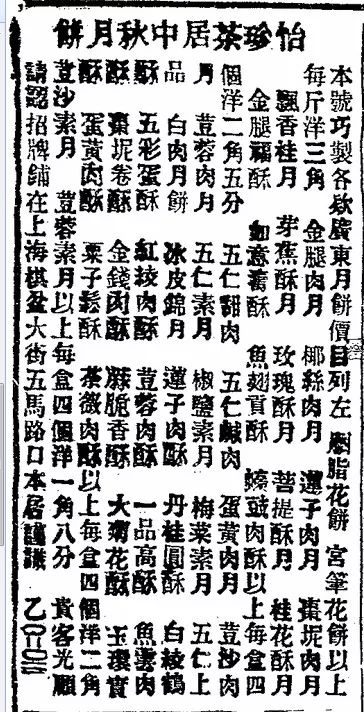 怡珍茶居中秋月餅
本號巧製各欵廣東月餅價目列左 胭脂花餅 宮筆花餅以上
每斤洋三角 金腿肉月 椰絲肉月 蓮子肉月 棗坭肉月
飄香桂月 芽蕉酥月 玫瑰酥月 菩提酥月 桂花酥月
金腿福酥 如意酥 魚翅貢酥 蠔豉肉酥以上每盒四
個洋二角五分 五仁甜肉 五仁鹹肉 蛋黃肉月 荳沙肉
月 荳蓉肉月 五仁素月 椒鹽素月 梅菜素月 五仁上
品 白肉月餅 冰皮錦月 蓮子肉酥 丹桂圓酥 白綾鶴
酥 五彩蛋酥 紅綾肉酥 荳蓉肉酥 一品高酥 魚雲肉
酥 棗坭卷酥 金錢肉酥 蔴脆香酥 大菊花酥 玉環實
酥 蛋黃肉酥 栗子鬆酥 茶薇肉酥以上每盒四個洋二角
荳沙素月 荳蓉素月以上每盒四個洋一角八分 貴客光顧
請認招牌鋪在上海棋盆大街五馬路口本居謹識